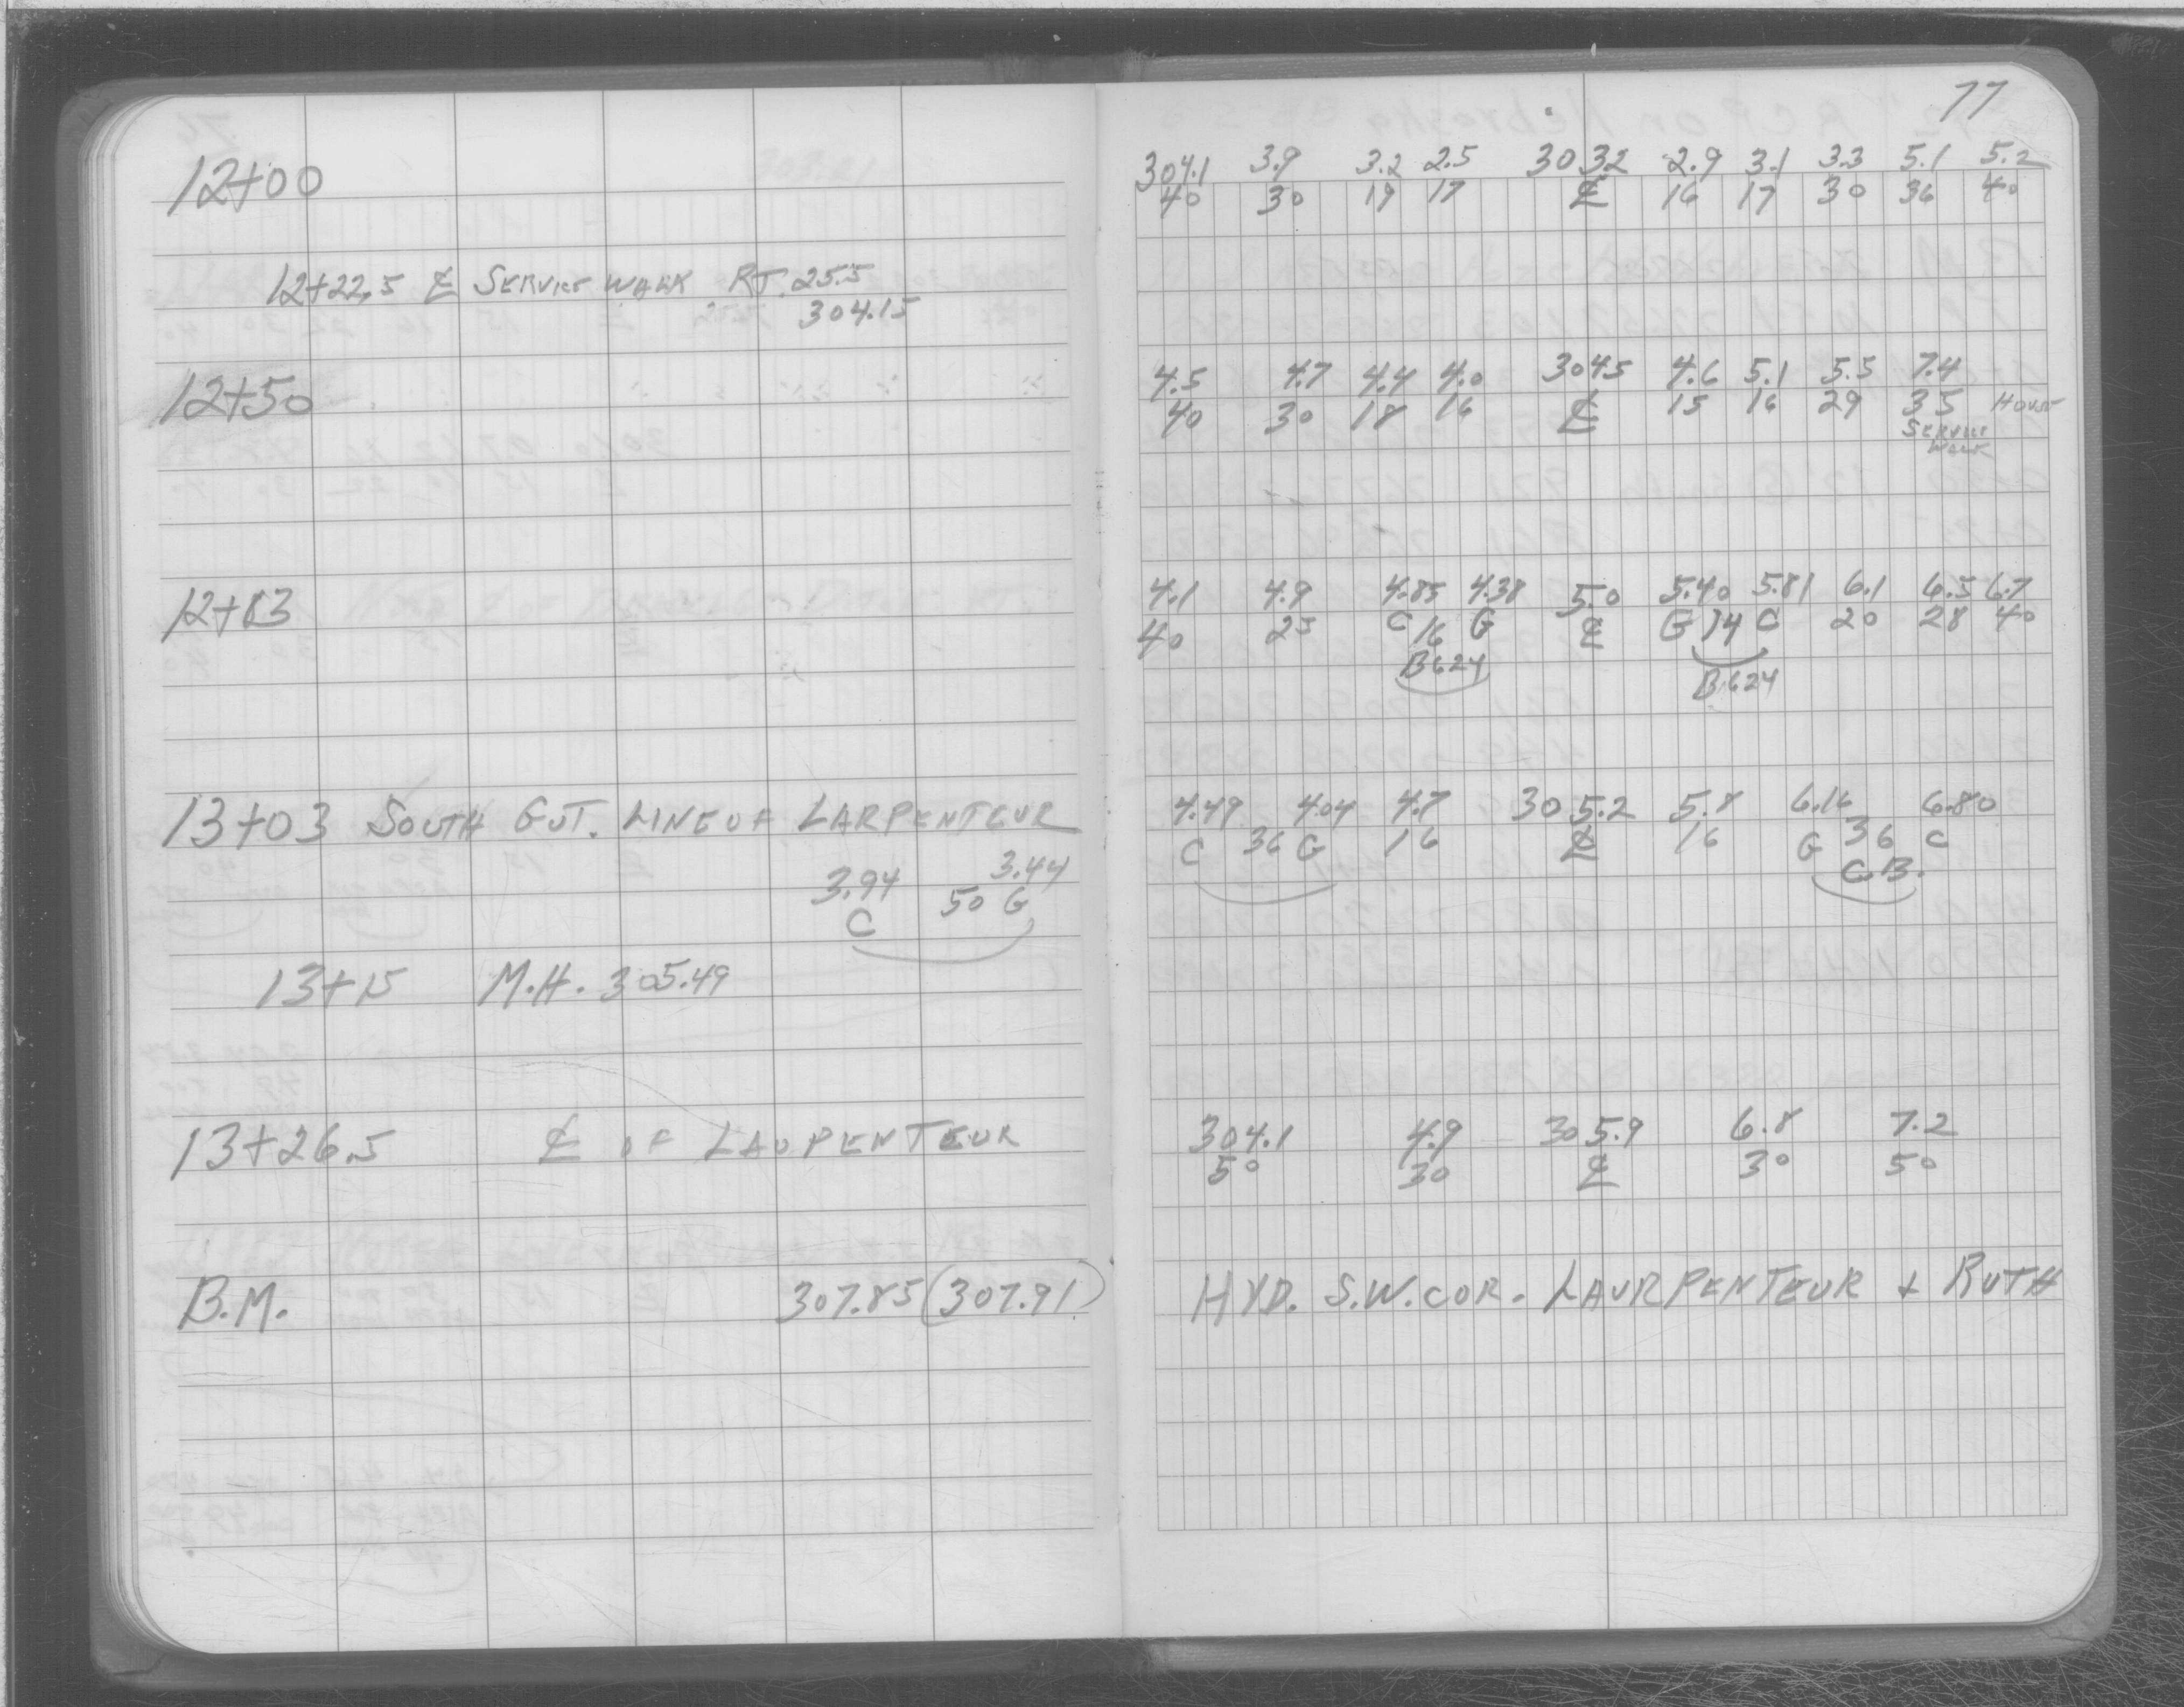 77
12+00
304.1 3.9 3.2 2.5 303.2 2.9 3.1 3.3 5.1 5.2
40 30 19 17 ℄ 16 17 30 36 40
12+22.5 ℄ SERVICE WALK RT. 25.5
304.15
12+50
4.5 4.7 4.4 4.0 304.5 4.6 5.1 5.5 7.4
40 30 18 16 ℄ 15 16 29 35 HOUSE
SERVICE
WALK
12+83
4.1 4.9 4.85 4.38 5.0 5.40 5.81 6.1 6.5 6.7
40 25 C 16 G ℄ G 14 C 20 28 40
B624 B624
13+03 SOUTH GUT. LINE OF LARPENTEUR
4.49 4.04 4.7 305.2 5.8 6.16 6.80
C 36 G 16 ℄ 16 G 36 C
C.B.
3.94 3.44
C 50 G
13+15 M.H. 305.49
13+26.5 ℄ OF LAUPENTEUR
304.1 4.9 305.9 6.8 7.2
50 30 ℄ 30 50
B.M. 307.85 (307.91) HYD. S.W. COR. LAURPENTEUR + RUTH